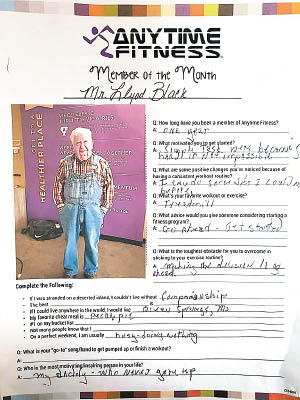 ANYTIME
FITNESS
Member of the Month
Mr. Llyod Black
HEALTHIER PLACE
Q: How long have you been a member of Anytime Fitness?
A: one year
Q: What motivated you to get started?
A: Simple task were becoming
hard if not impossible
Q: What are some positive changes you've noticed because of
having a consistent workout routine?
A: I can do
before
Q: What's your favorite workout or exercise?
A:
Q: What advice would you give someone considering starting a
fitness program?
A: Go ahead - Get started
Q: What is the toughest obstacle for you to overcome in
sticking to your exercise routine?
A: Making the decision to go
ahead.
Complete the Following:
If I was stranded on a deserted island, I couldn't live without Companionship
The best
If I could live anywhere in the world, I would live Springs, Ms
My favorite cheat meal is pecan pie
#1 on my bucket list
Not many people know that I
On a perfect weekend, I am usually busy doing nothing
Q: What is your "go-to" song/band to get pumped up or finish a workout?
A:
Q: Who is the most motivating/inspiring person in your life?
A: my daddy - who never gave up